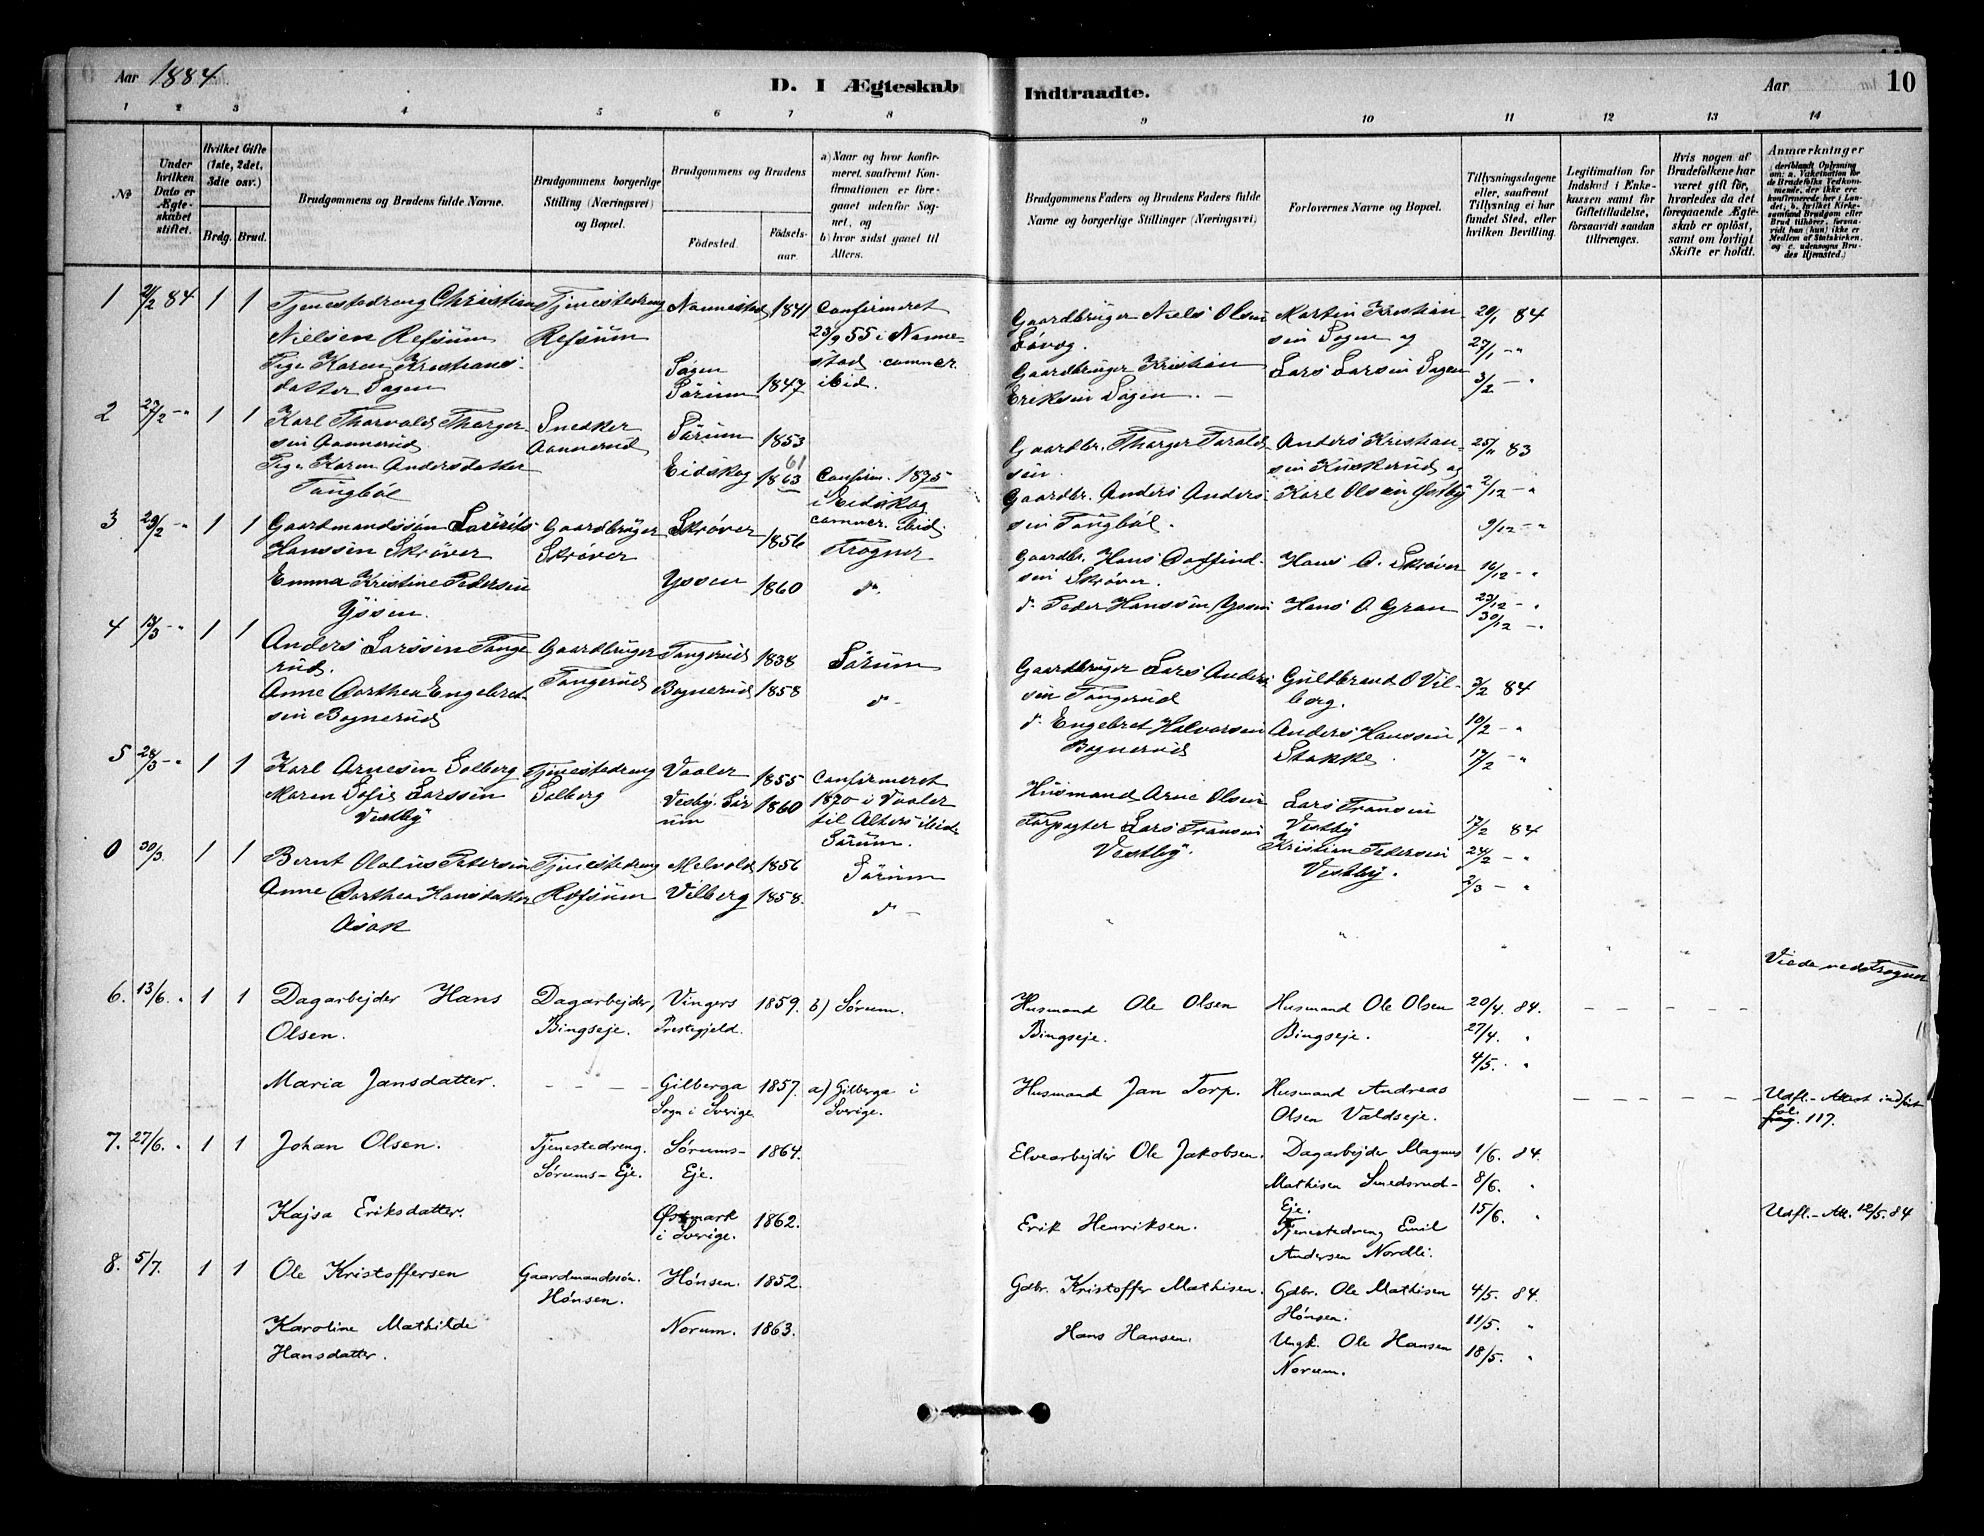 Aar 1884
D. I Ægteskab Indtraadte.
Aar 10
1 2 3 4 5 6 7 8 9 10 11 12 13 14
№
Under hvilken Dato er Ægteskabet stiftet.
Hvilket Gifte (1ste, 2det, 3die osv.)
Brdg. Brud.
Brudgommens og Brudens fulde Navne.
Brudgommens borgerlige Stilling (Næringsvei) og Bopæl.
Brudgommens og Brudens
Fødested.
Fødselsaar.
a) Naar og hvor konfirmeret, saafremt Konfirmationen er foregaaet udenfor Sognet, og
b) hvor sidst gaaet til Alters.
Brudgommens Faders og Brudens Faders fulde Navne og borgerlige Stillinger (Næringsvei)
Forlovernes Navne og Bopæl.
Tillysningsdagene eller, saafremt Tillysning ei har fundet Sted, efter hvilken Bevilling.
Legitimation for Indskud i Enkekassen samt for Giftetilladelse, forsaavidt saadan tiltrænges.
Hvis nogen af Brudefolkene har været gift før, hvorledes da det foregaaende Ægteskab er opløst, samt om lovligt Skifte er holdt.
Anmærkninger
(deriblandt Oplysning om: a. Vakcination for de Brudefolks Vedkommende, der ikke ere konfirmerede her i Landet, b. hvilket Kirkesamfund Brudgom eller Brud tilhører, forsaavidt han (hun) ikke er Medlem af Statskirken, og c. udensogns Brudes Hjemsted.)
1 21/2 84 1 1 Tjenestedreng Christian Tjenestedreng Nannestad 1841 Confirmeret
Nielsen Refsum Refsum 23/9 55 i Nanne-
Pige Karen Kristians- Sagen stad commer.
datter Sagen Sørum 1847 ibid.
Gaardbruger Niels Olsen Martin Kristian- 20/1 84
Løvog. sen Sogn og 27/1 -"
Gaardbruger Kristian Lars Larsen Sagen 3/2 -"
Eriksen Sagen. -
2 27/2 -" 1 1 Karl Thorvald Thorger- Snedker Sørum 1853
sen Aannerud Aannerud 61
Pige Karen Andersdatter Eidskog 1863 Confirm. 1875
Tangbøl i Eidskog
commer. ibid.
Gaardbr. Thorger Tarald- Anders Kristian- 25/11 83
sen. sen Kuskerud og
Gaardbr. Anders Anders- Karl Olsen Østby 2/12 -"
sen Tangbøl. 9/12 -"
3 29/2 -" 1 1 Gaardmandssøn Laurits Gaardbruger Skrøver 1856 Frogner
Hanssen Skrøver Skrøver
Emma Kristine Pedersen Yssen 1860 d°.
Yssen.
Gaardbr. Hans Daffind- Hans O. Skrøver 16/12 -"
sen Skrøver.
d° Peder Hanssen Yssen Hans O Gran 23/12 -"
30/12 -"
4 13/3 -" 1 1 Anders Larssen Tange- Gaardbruger Tangerud 1838 Sørum
rud. Tangerud
Anne Dorthea Engebret- Bognerud 1858 d° -
sen Bognerud
Gaardbruger Lars Anders- Guldbrand O Vil- 3/2 84
sen Tangerud berg.
d° Engebret Halvorsen Anders Hanssen 10/2 -"
Bognerud Stakke. 17/2 -"
5 28/3 -" 1 1 Karl Arnesen Solberg Tjenestedreng Vaaler 1855 Confirmeret
Maren Sofie Larssen Solberg Vesby. Sør- 1860 1870 i Vaaler
Vestby um til Alters ibid.
Sørum.
Husmand Arne Olsen Lars Fransen 17/2 84
Vestby
Forpagter Lars Fransen Kristian Pedersen 24/2 -"
Vestby. Vestby. 2/3 - "
0 30/3. 1 1 Bernt Olalius Petersen Tjenestedreng Melvold 1856 Sørum
Anne Dorthea Hansdatter Refsum Vilberg 1858. d° -
Asak
" " " " "
Viede ved Frogner
6. 13/6. " 1 1 Dagarbejder Hans Dagarbejder, Vingers 1859. b) Sørum.
Olsen. Bingseje. Prestegjeld.
Husmand Ole Olsen Husmand Ole Olsen 20/4. 84.
Bingseje. Bingseje. 27/4. "
4/5. "
Maria Jansdatter. - - - - Gilberga 1857. a) Gilberga i
Sogn i Sverige. Sverige.
Husmand Jan Torp. Husmand Andreas
Olsen Valdseje.
Udfl.-Attest indført
fol.
pag. 117.
7. 27/6. " 1 1 Johan Olsen. Tjenestedreng. Sørums- 1864.
Sørums-Eje. Eje.
Elvearbejder Ole Jakobsen. Dagarbejder Magnus 1/6. 84.
Mathisen Smedsrud- 8/6. "
Eje. 15/6. "
Kajsa Eriksdatter. Østmark 1862.
i Sverige.
Erik Henriksen. Tjenestedreng Emil
Andersen Nordli.
Udfl.-Att. 12/5. 84
8. 5/7. 1 1 Ole Kristoffersen Gaardmandssøn. Hønsen. 1852.
Hønsen.
Gdbr. Kristoffer Mathisen. Gdbr. Ole Mathisen 4/5. 84.
Hønsen. 11/5. "
Karoline Mathilde Norum. 1863.
Hansdatter.
Hans Hansen. Ungk. Ole Hansen 18/5. "
Norum.